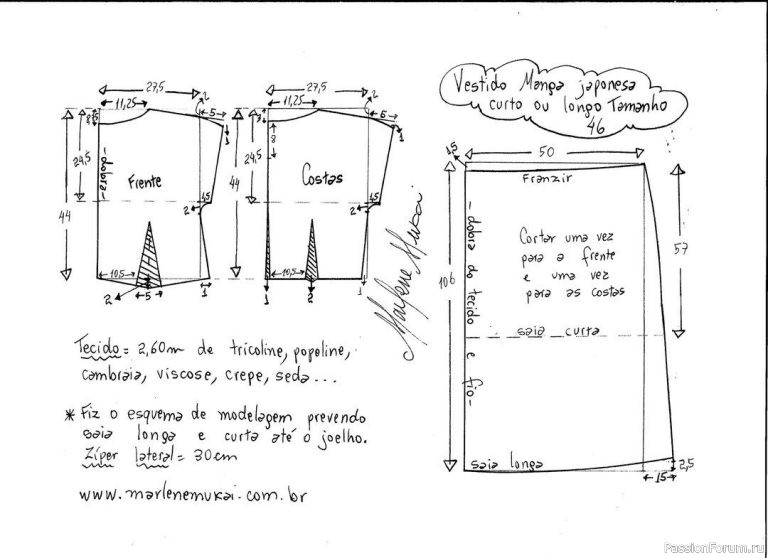 Vestido Manga japonesa
curto ou longo Tamanho
46
27,5
11,25
2
5
8
1
24,5
44
-dobra-
Frente
15
2
10,5
5
2
1
27,5
11,25
2
6
8
1
24,5
44
Costas
15
2
10,5
1
2
1
Marlene Mukai
15
50
Franzir
106
-dobra do tecido e fio-
Cortar uma vez
para a frente
e uma vez
para as costas
57
saia curta
saia longa
2,5
15
Tecido = 2,60m de tricoline, popeline,
cambraia, viscose, crepe, seda...
* Fiz o esquema de modelagem prevendo
saia longa e curta até o joelho.
Zíper lateral = 30cm
www.marlenemukai.com.br
PassionForum.ru